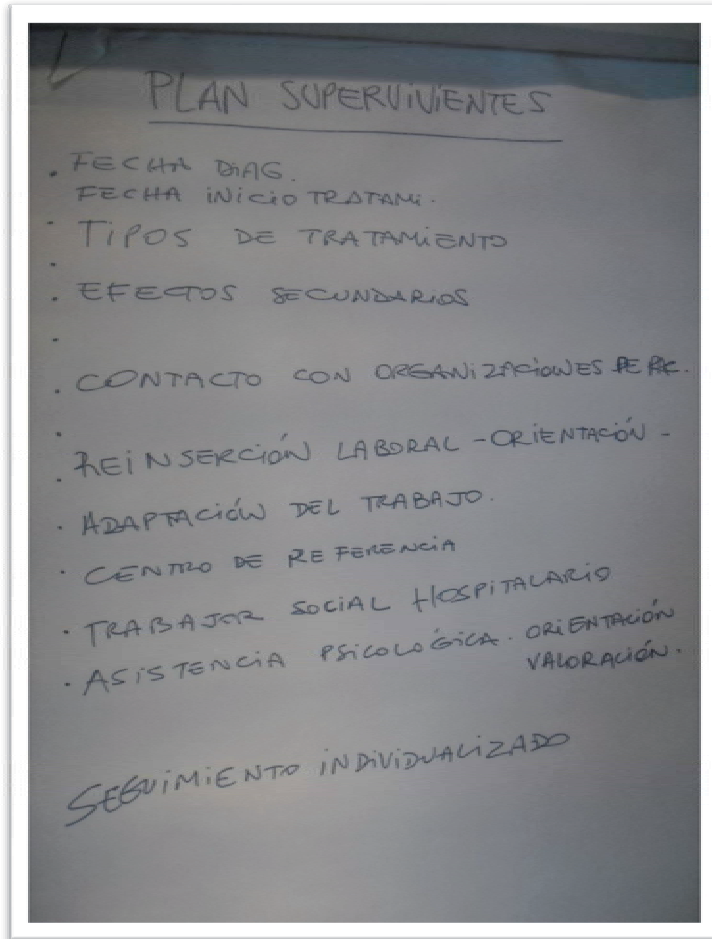 PLAN SUPERVIVIENTES
. FECHA DIAG.
FECHA INICIO TRATAMI.
. TIPOS DE TRATAMIENTO
.
. EFECTOS SECUNDARIOS
.
. CONTACTO CON ORGANIZACIONES DE
.
. REINSERCIÓN LABORAL - ORIENTACIÓN -
. ADAPTACIÓN DEL TRABAJO.
. CENTRO DE REFERENCIA
. TRABAJOR SOCIAL HOSPITALARIO
. ASISTENCIA PSICOLÓGICA. ORIENTACIÓN
VALORACIÓN.
SEGUIMIENTO INDIVIDUALIZADO